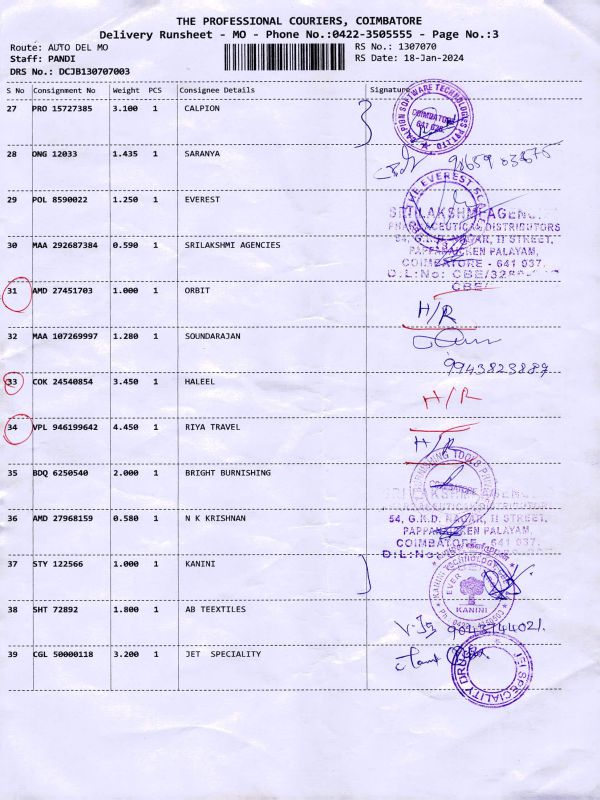 THE PROFESSIONAL COURIERS, COIMBATORE
Delivery Runsheet - MO - Phone No.:0422-3505555 - Page No.:3
Route: AUTO DEL MO RS No.: 1307070
Staff: PANDI RS Date: 18-Jan-2024
DRS No.: DCJB130707003
S No Consignment No Weight PCS Consignee Details Signature
27 PRO 15727385 3.100 1 CALPION
CALPION SOFTWARE TECHNOLOGIES
COIMBATORE
28 ONG 12033 1.435 1 SARANYA
29 POL 8590022 1.250 1 EVEREST
EVEREST
SRI LAKSHMI AGENC
PHARMACEUTICAL DISTRIBUTORS
54, G.K.D. NAGAR, II STREET,
30 MAA 292687384 0.590 1 SRILAKSHMI AGENCIES
PAPPANAICKEN PALAYAM,
COIMBATORE - 641 037.
D.L.No: CBE/
CBE/
31 AMD 27451703 1.000 1 ORBIT
H/R
32 MAA 107269997 1.280 1 SOUNDARAJAN
9943823889
33 COK 24540854 3.450 1 HALEEL
H/R
34 VPL 946199642 4.450 1 RIYA TRAVEL
H/R
35 BDQ 6250540 2.000 1 BRIGHT BURNISHING
BURNISHING TOOLS
COIMBATORE
36 AMD 27968159 0.580 1 N K KRISHNAN
54, G.K.D. NAGAR, II STREET,
PAPPANAICKEN PALAYAM,
COIMBATORE - 641 037.
D.L.No:
37 STY 122566 1.000 1 KANINI
KANINI TECHNOLOGY
EVER
KANINI
38 SHT 72892 1.800 1 AB TEEXTILES
39 CGL 50000118 3.200 1 JET SPECIALITY
JET SPECIALITY